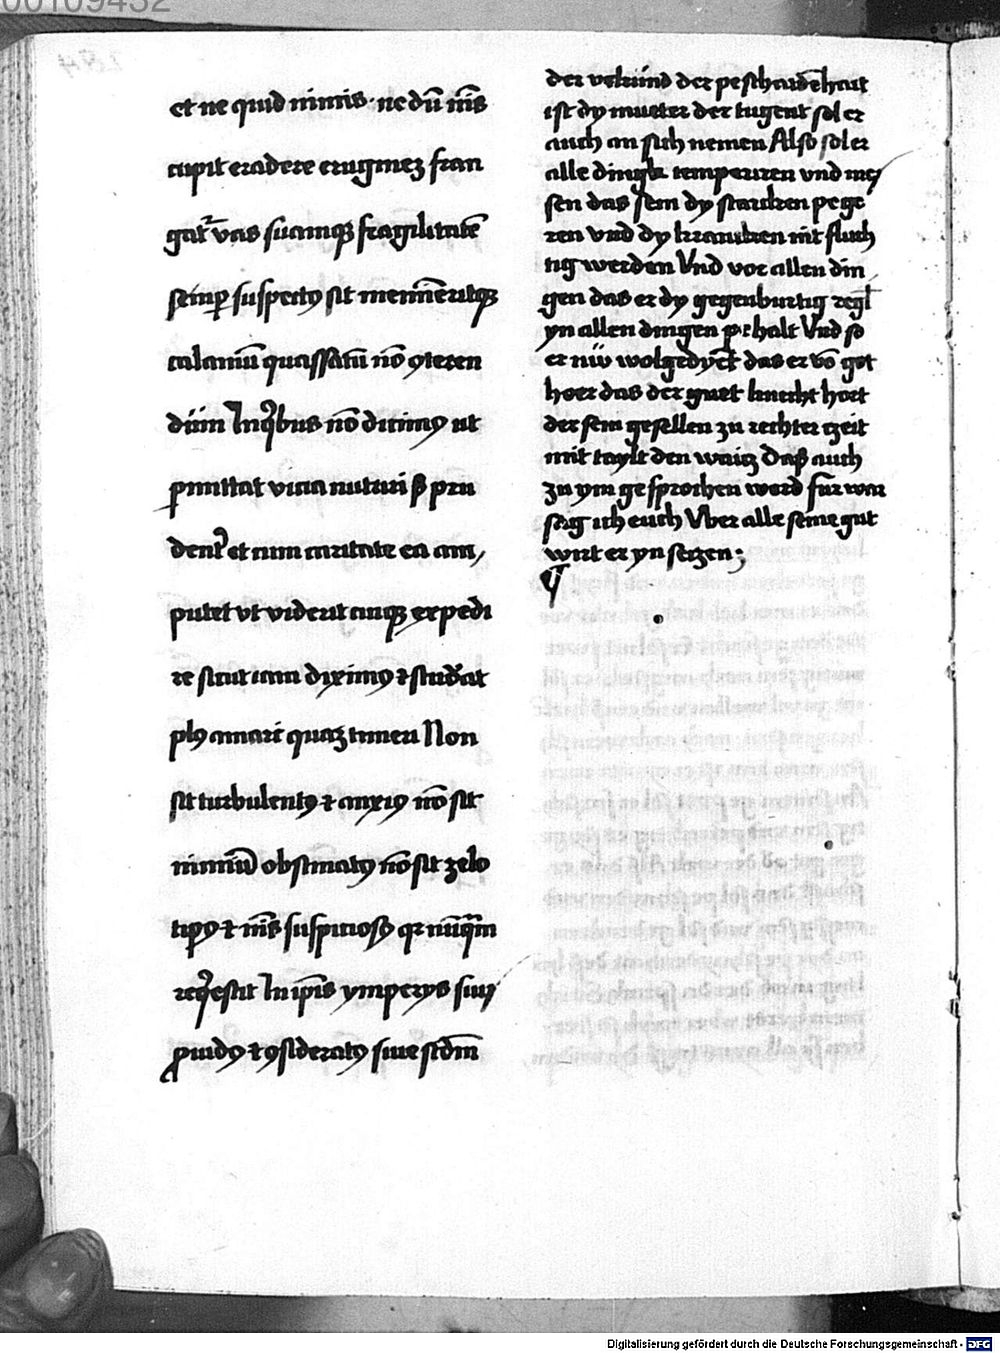 00109452
et ne quid nimis · ne dū nīs
cupit eradere eruginez fran
gat᷑ vas suamqꝫ fragilitatē
semꝑ suspectꝰ sit meminēritqꝫ
calamū quassatū nō ꝯteren
dum In qͥbus nō dicimꝰ ut
ꝑmittat vicia nutriri sꝫ pru
dent᷑ et cum caritate ea am
putet vt viderit cuiqꝫ expedi
re sicut iam diximꝰ ⁊ studeat
plꝰ amari quaꝫ timeri Non
sit turbulentꝰ ⁊ anxiꝰ nō sit
nimiū obstinatꝰ nō sit zelo
tipꝰ ⁊ nīs suspiciosꝰ qꝛ nūqᷓm
reqͥescit In ip̄is ymperys suis
ꝓuidꝰ ⁊ ꝯsideratꝰ siue scdm̄
der vrkund der peschaidēhait
ist dy mueter der tugent sol er
auch an sich nemen Also sol er
alle dingk temperiren vnd mes
sen das sein dy starcken pege
ren vnd dy krancken nit fluch
tig werden Vnd vor allen din
gen das er dy gegenburtig regl
yn allen dingen pehalt Vnd so
er nů wolgedyēt das er vō got
hoer das der guet knecht hort
der sein gesellen zu rechter czeit
mit taylt den waicz Daß auch
zu ym gesprochen werd fur war
sag ich euch Vber alle seine gut
wirt er yn seczen ;
Digitalisierung gefördert durch die Deutsche Forschungsgemeinschaft - DFG